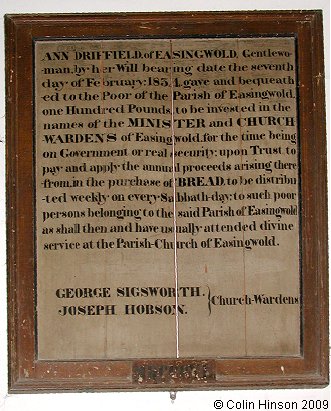 ANN DRIFFIELD, of EASINGWOLD, Gentlewo-
man, by her Will bearing date the seventh
day of February: 1854, gave and bequeath
-ed to the Poor of the Parish of Easingwold,
one Hundred Pounds, to be invested in the
names of the MINISTER and CHURCH
WARDENS of Easingwold, for the time being
on Government or real security; upon Trust to
pay and apply the annual proceeds arising there
-from, in the purchase of BREAD, to be distribu
-ted weekly on every Sabbath-day; to such poor
persons belonging to the said Parish of Easingwold
as shall then and have usually attended divine
service at the Parish-Church of Easingwold.
GEORGE SIGSWORTH.
JOSEPH HOBSON.
Church-Wardens
© Colin Hinson 2009